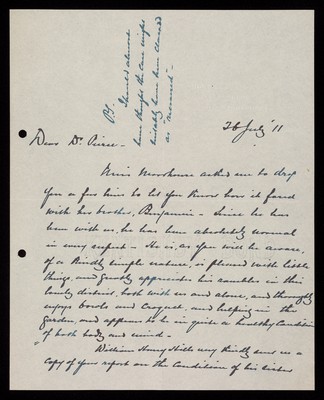 PS. I should almost
have thought the case might
suitably have been classed
as "recovered" -
26 July '11
Dear Dr. Pierce -
Miss Moorhouse asked me to drop
you a few lines to let you know how it fared
with his brother, Benjamin - Since he has
been with us, he has been absolutely normal
in every respect - He is, as you will be aware,
of a kindly simple nature, is pleased with little
things, and greatly appreciates his rambles in this
lovely district, both with us and alone, and thoroughly
enjoys bowls and croquet, and helping in the
garden, and appears to be in quite a healthy condition
of both body and mind -
William Henry Hills very kindly sent us a
copy of your report on the condition of his